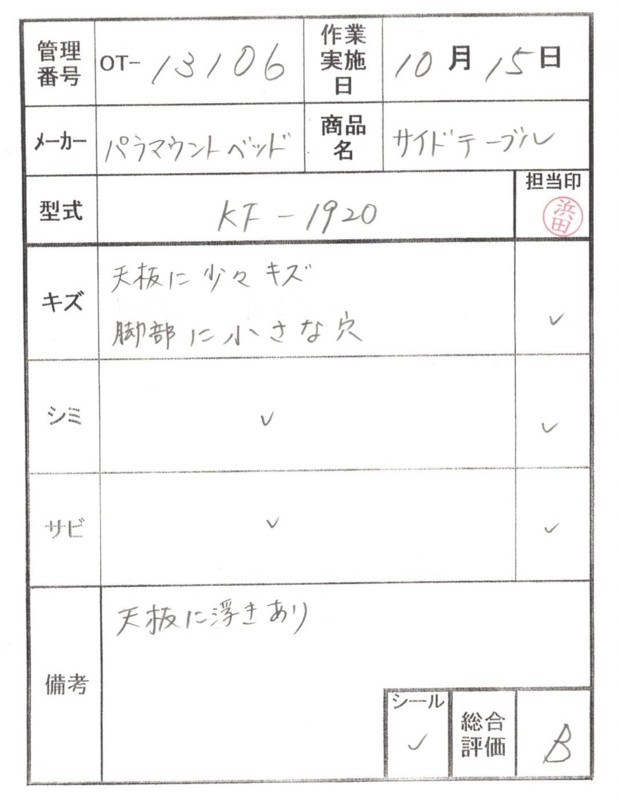 管理番号 OT-13106 作業実施日 10月15日
メーカー パラマウントベッド 商品名 サイドテーブル
型式 KF-1920 担当印 浜田
キズ 天板に少々キズ
脚部に小さな穴 ✓
シミ ✓ ✓
サビ ✓ ✓
備考 天板に浮きあり
シール ✓ 総合評価 B